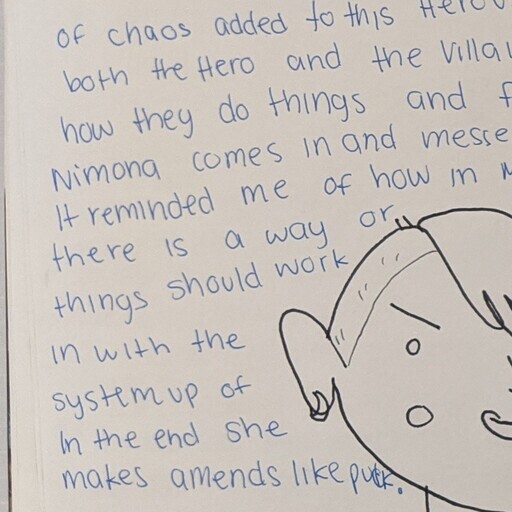 of chaos added to this Hero
both the Hero and the Villa
how they do things and f
Nimona comes in and messe
It reminded me of how in
there is a way or
things should work
in with the
system up of
In the end she
makes amends like puck.